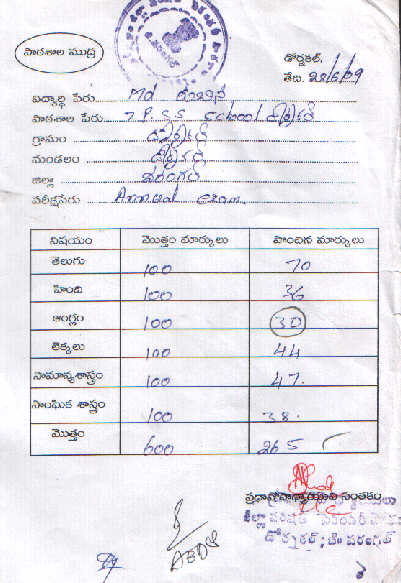 పాఠశాల ముద్ర
డోర్నకల్,
తేది. 28/6/09
విద్యార్థి పేరు Md
పాఠశాల పేరు Z.P.S.S School డోర్నకల్
గ్రామం డోర్నకల్
మండలం డోర్నకల్
జిల్లా వరంగల్
పరీక్షపేరు Annual Exam.
విషయం మొత్తం మార్కులు పొందిన మార్కులు
తెలుగు 100 70
హింది 100 36
ఆంగ్లం 100 30
లెక్కలు 100 44
సామాన్యశాస్త్రం 100 47.
సాంఘిక శాస్త్రం 100 38.
మొత్తం 600 265
ప్రధానోపాధ్యాయుని సంతకం
జిల్లా పరిషత్ సెకండరీ
డోర్నకల్, జి. వరంగల్